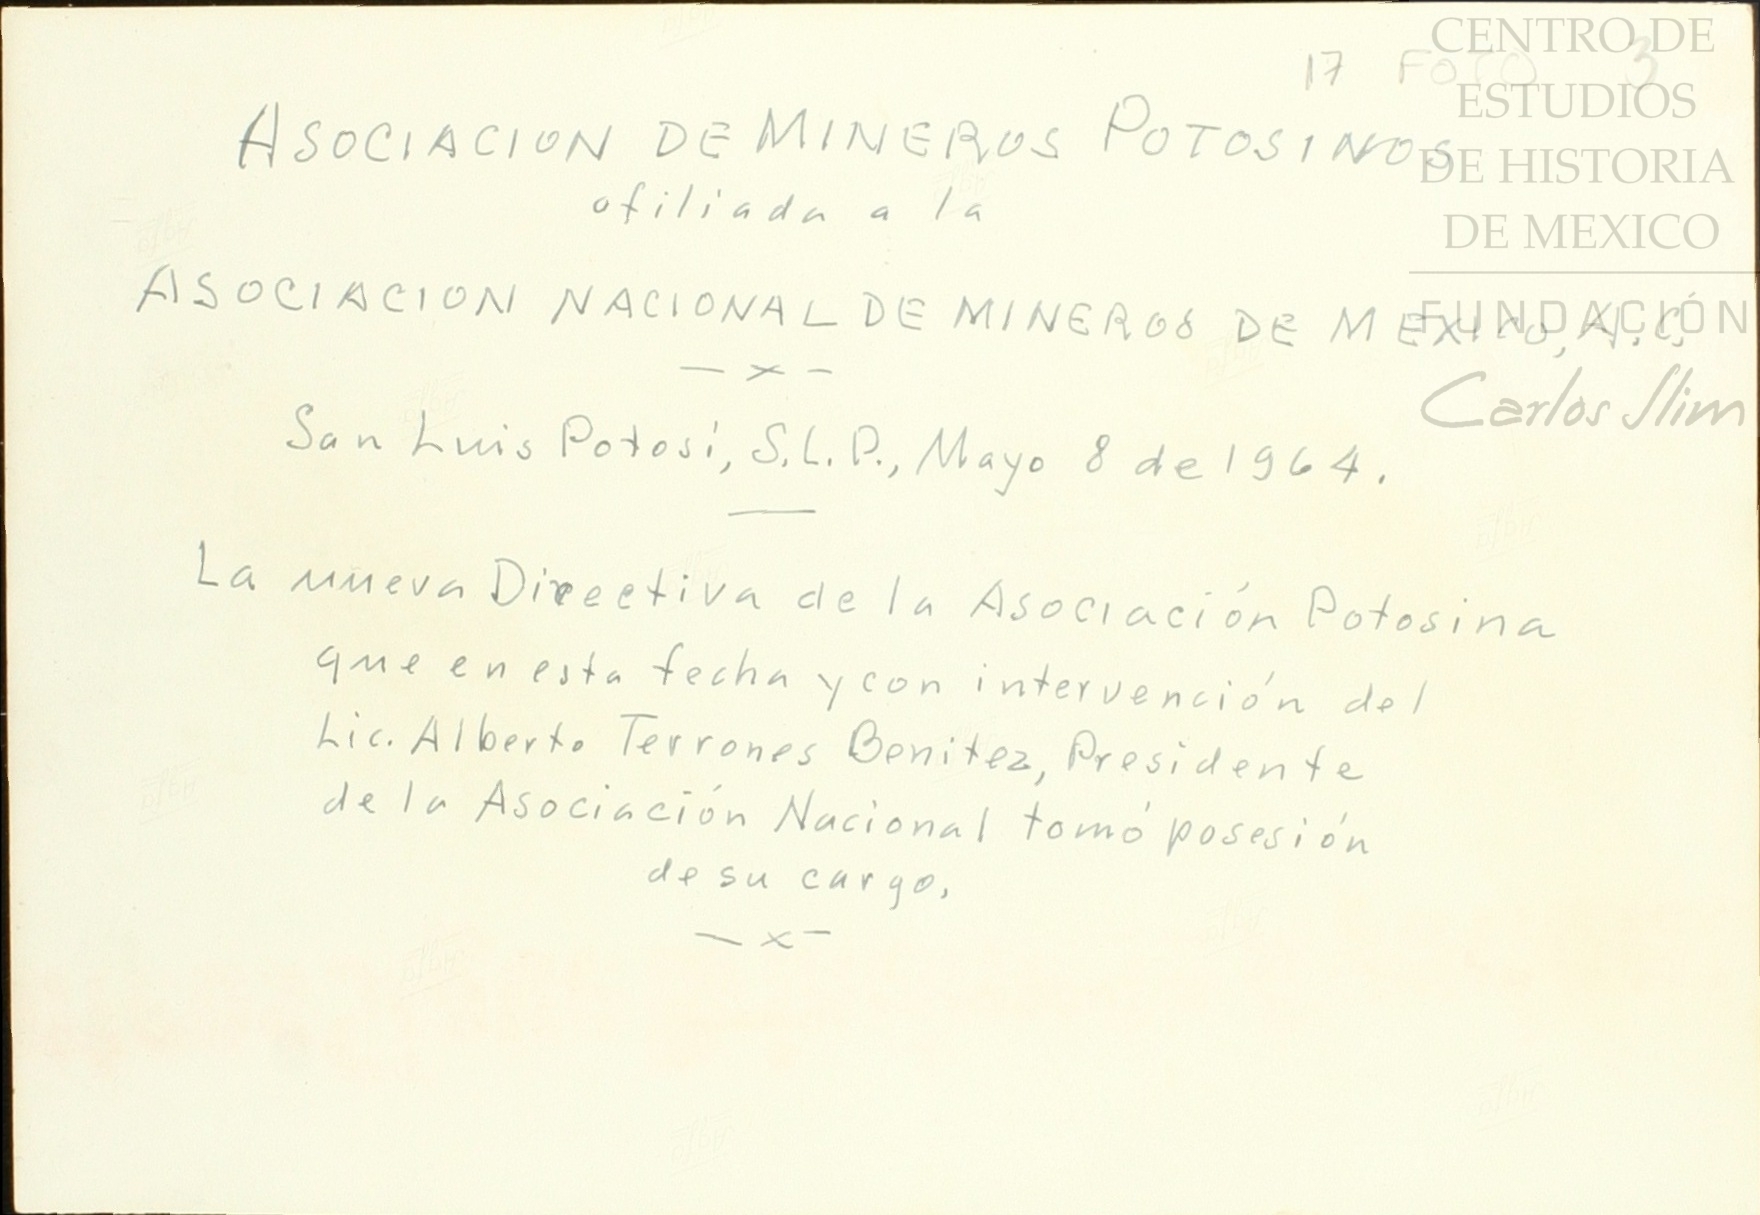 17 FOTO 3
ASOCIACION DE MINEROS POTOSINOS
afiliada a la
ASOCIACION NACIONAL DE MINEROS DE MEXICO, A.C.
— x —
San Luis Potosí, S.L.P., Mayo 8 de 1964.
La nueva Directiva de la Asociación Potosina
que en esta fecha y con intervención del
Lic. Alberto Terrones Benitez, Presidente
de la Asociación Nacional tomó posesión
de su cargo.
— x —
CENTRO DE
ESTUDIOS
DE HISTORIA
DE MEXICO
FUNDACIÓN
Carlos Slim